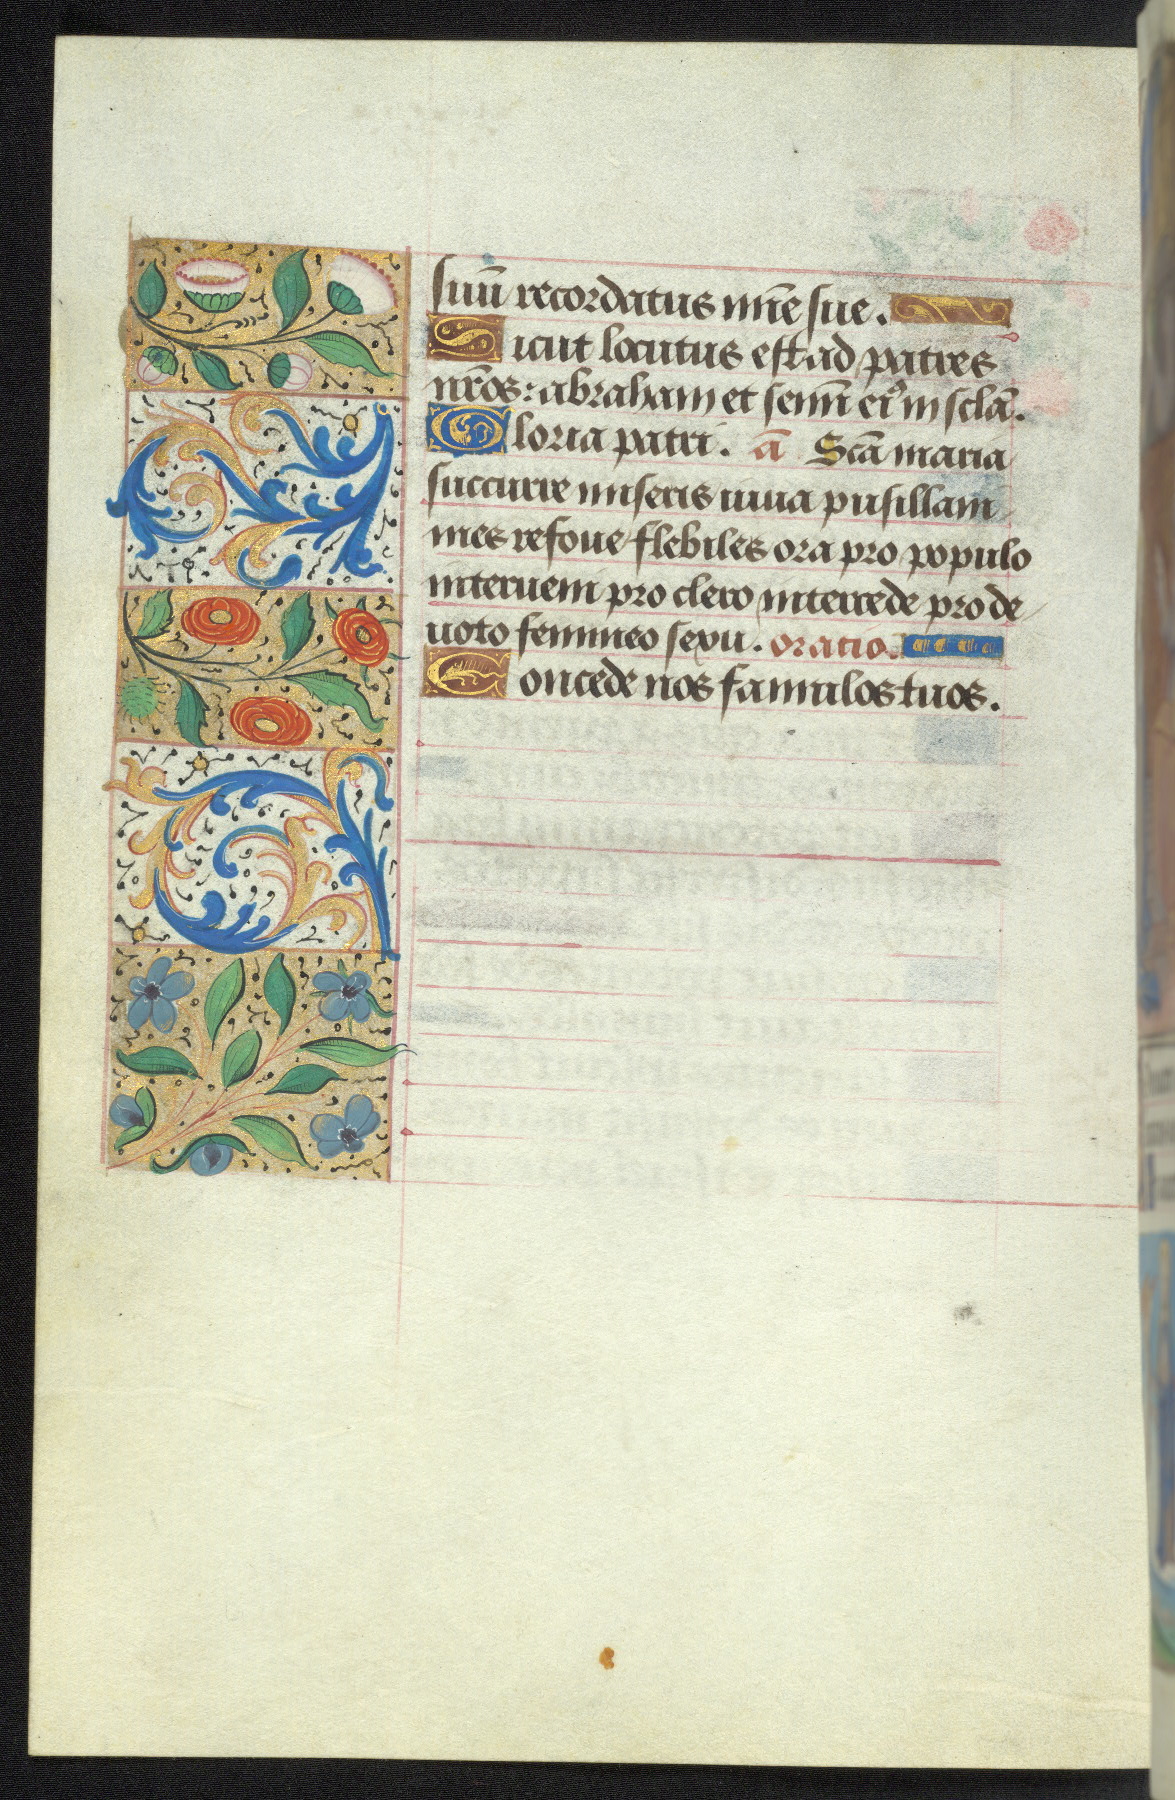 suū recordatus mīe sue.
Sicut locutus est ad patres
nr̄os: abraham et semī ei᾽ in sclā.
Gloria patri. ā Scā maria
succurre miseris iuua pusillani
mes refoue flebiles ora pro populo
interueni pro clero intercede pro de
uoto femineo sexu. oratio.
Concede nos famulos tuos.